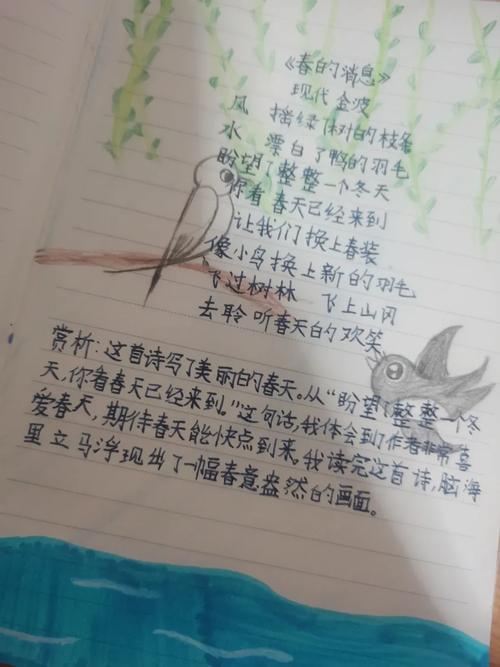 《春的消息》
现代 金波
风 摇绿了树的枝条
水 漂白了鸭的羽毛
盼望了整整一个冬天
你看 春天已经来到
让我们换上春装
像小鸟换上新的羽毛
飞过树林 飞上山冈
去聆听春天的欢笑
赏析:这首诗写了美丽的春天。从“盼望了整整一个冬
天,你看春天已经来到。”这句话,我体会到了作者非常喜
爱春天,期待春天能快点到来。我读完这首诗,脑海
里立马浮现出了一幅春意盎然的画面。